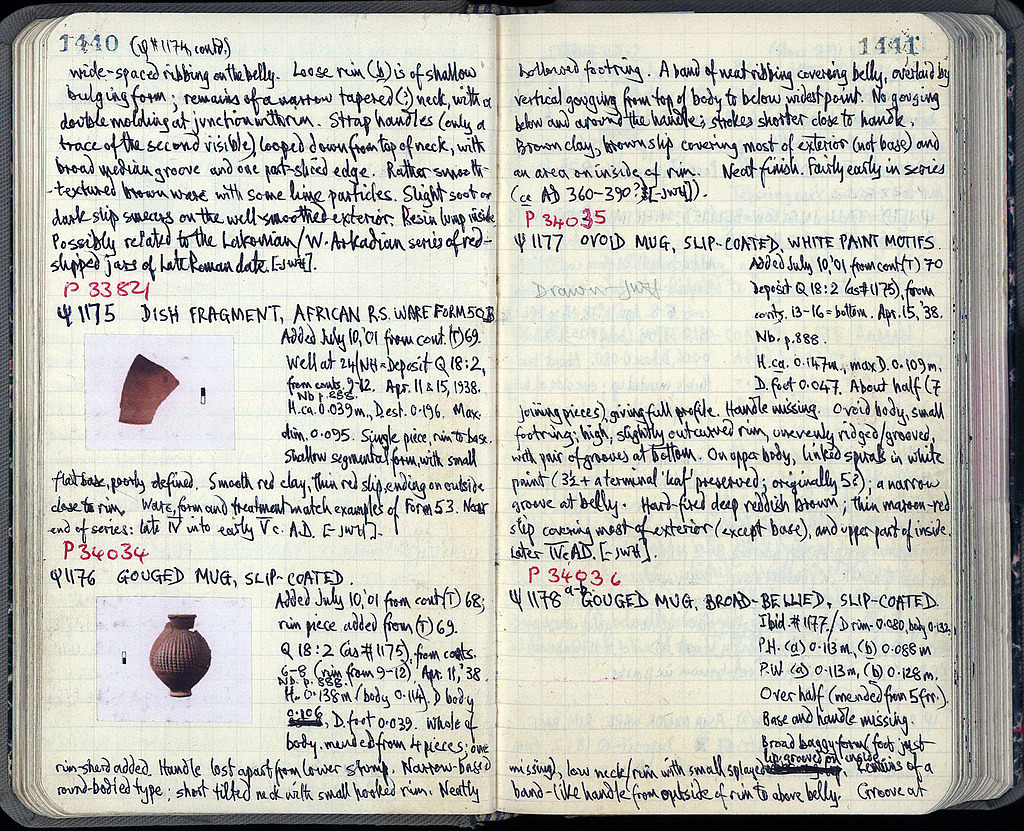 1440 (Ψ #1174, contd.)
wide-spaced ribbing on the belly. Loose rim (b) is of shallow
bulging form; remains of a narrow tapered (?) neck, with a
double molding at junction with rim. Strap handles (only a
trace of the second visible) looped down from top of neck, with
broad median groove and one part-sliced edge. Rather smooth-
-textured brown ware with some lime particles. Slight soot or
dark slip smears on the well-smoothed exterior. Resin lump inside
Possibly related to the Lakonian/W. Arkadian series of red-
slipped jars of Late Roman date. [-JWH].
P 33821
Ψ 1175 DISH FRAGMENT, AFRICAN R.S. WARE FORM 50B
Added July 10,'01 from cont. (T) 69.
Well at 24/NH = Deposit Q 18:2,
from conts. 9-12. Apr. 11 & 15, 1938.
Nb p. 888.
H. ca. 0.039m., D est. 0.196. Max.
dim. 0.095. Single piece, rim to base.
Shallow segmental form, with small
flat base, poorly defined. Smooth red clay, thin red slip, ending on outside
close to rim. Ware, form and treatment match examples of Form 53. Near
end of series: late IV into early V c. A.D. [-JWH].
P 34034
Ψ 1176 GOUGED MUG, SLIP-COATED.
Added July 10,'01 from cont (T) 68;
rim piece added from (T) 69.
Q 18:2 (as #1175), from conts.
6-8 (rim from 9-12). Apr. 11,'38
Nb. p. 888.
H. 0.138m (body 0.114), D body
0.106, D. foot 0.039. Whole of
body, mended from 4 pieces; one
rim-sherd added. Handle lost apart from lower stump. Narrow-based
round-bodied type; short tilted neck with small hooked rim. Neatly
1441
hollowed footring. A band of neat ribbing covering belly, overlaid by
vertical gouging from top of body to below widest point. No gouging
below and around the handle; strokes shorter close to handle.
Brown clay, brown slip covering most of exterior (not base) and
an area on inside of rim. Neat finish. Fairly early in series
(ca AD 360-390? [-JWH]).
P 34035
Ψ 1177 OVOID MUG, SLIP-COATED, WHITE PAINT MOTIFS.
Added July 10,'01 from cont (T) 70
Drawn -
Deposit Q 18:2 (as #1175), from
conts. 13-16 = bottom. Apr. 15,'38.
Nb. p. 888.
H. ca. 0.147m., max D. 0.109m.
D. foot 0.047. About half (7
joining pieces), giving full profile. Handle missing. Ovoid body, small
footring; high, slightly outcurved rim, unevenly ridged/grooved,
with pair of grooves at bottom. On upper body, linked spirals in white
paint (3½ + a terminal 'leaf' preserved; originally 5?); a narrow
groove at belly. Hard-fired deep reddish brown; thin maroon-red
slip covering most of exterior (except base), and upper part of inside.
Later IV c AD. [-JWH].
P 34036
Ψ 1178 a-b GOUGED MUG, BROAD-BELLIED, SLIP-COATED.
Ibid #1177. / D rim. 0.080, body 0.132.
P.H. (a) 0.113m, (b) 0.088m
P.W. (a) 0.113m, (b) 0.128m.
Over half (mended from 5 frr.).
Base and handle missing.
Broad baggy form (foot just
missing), low neck/rim with small splayed lip grooved on inside. Remains of a
band-like handle from outside of rim to above belly. Groove at